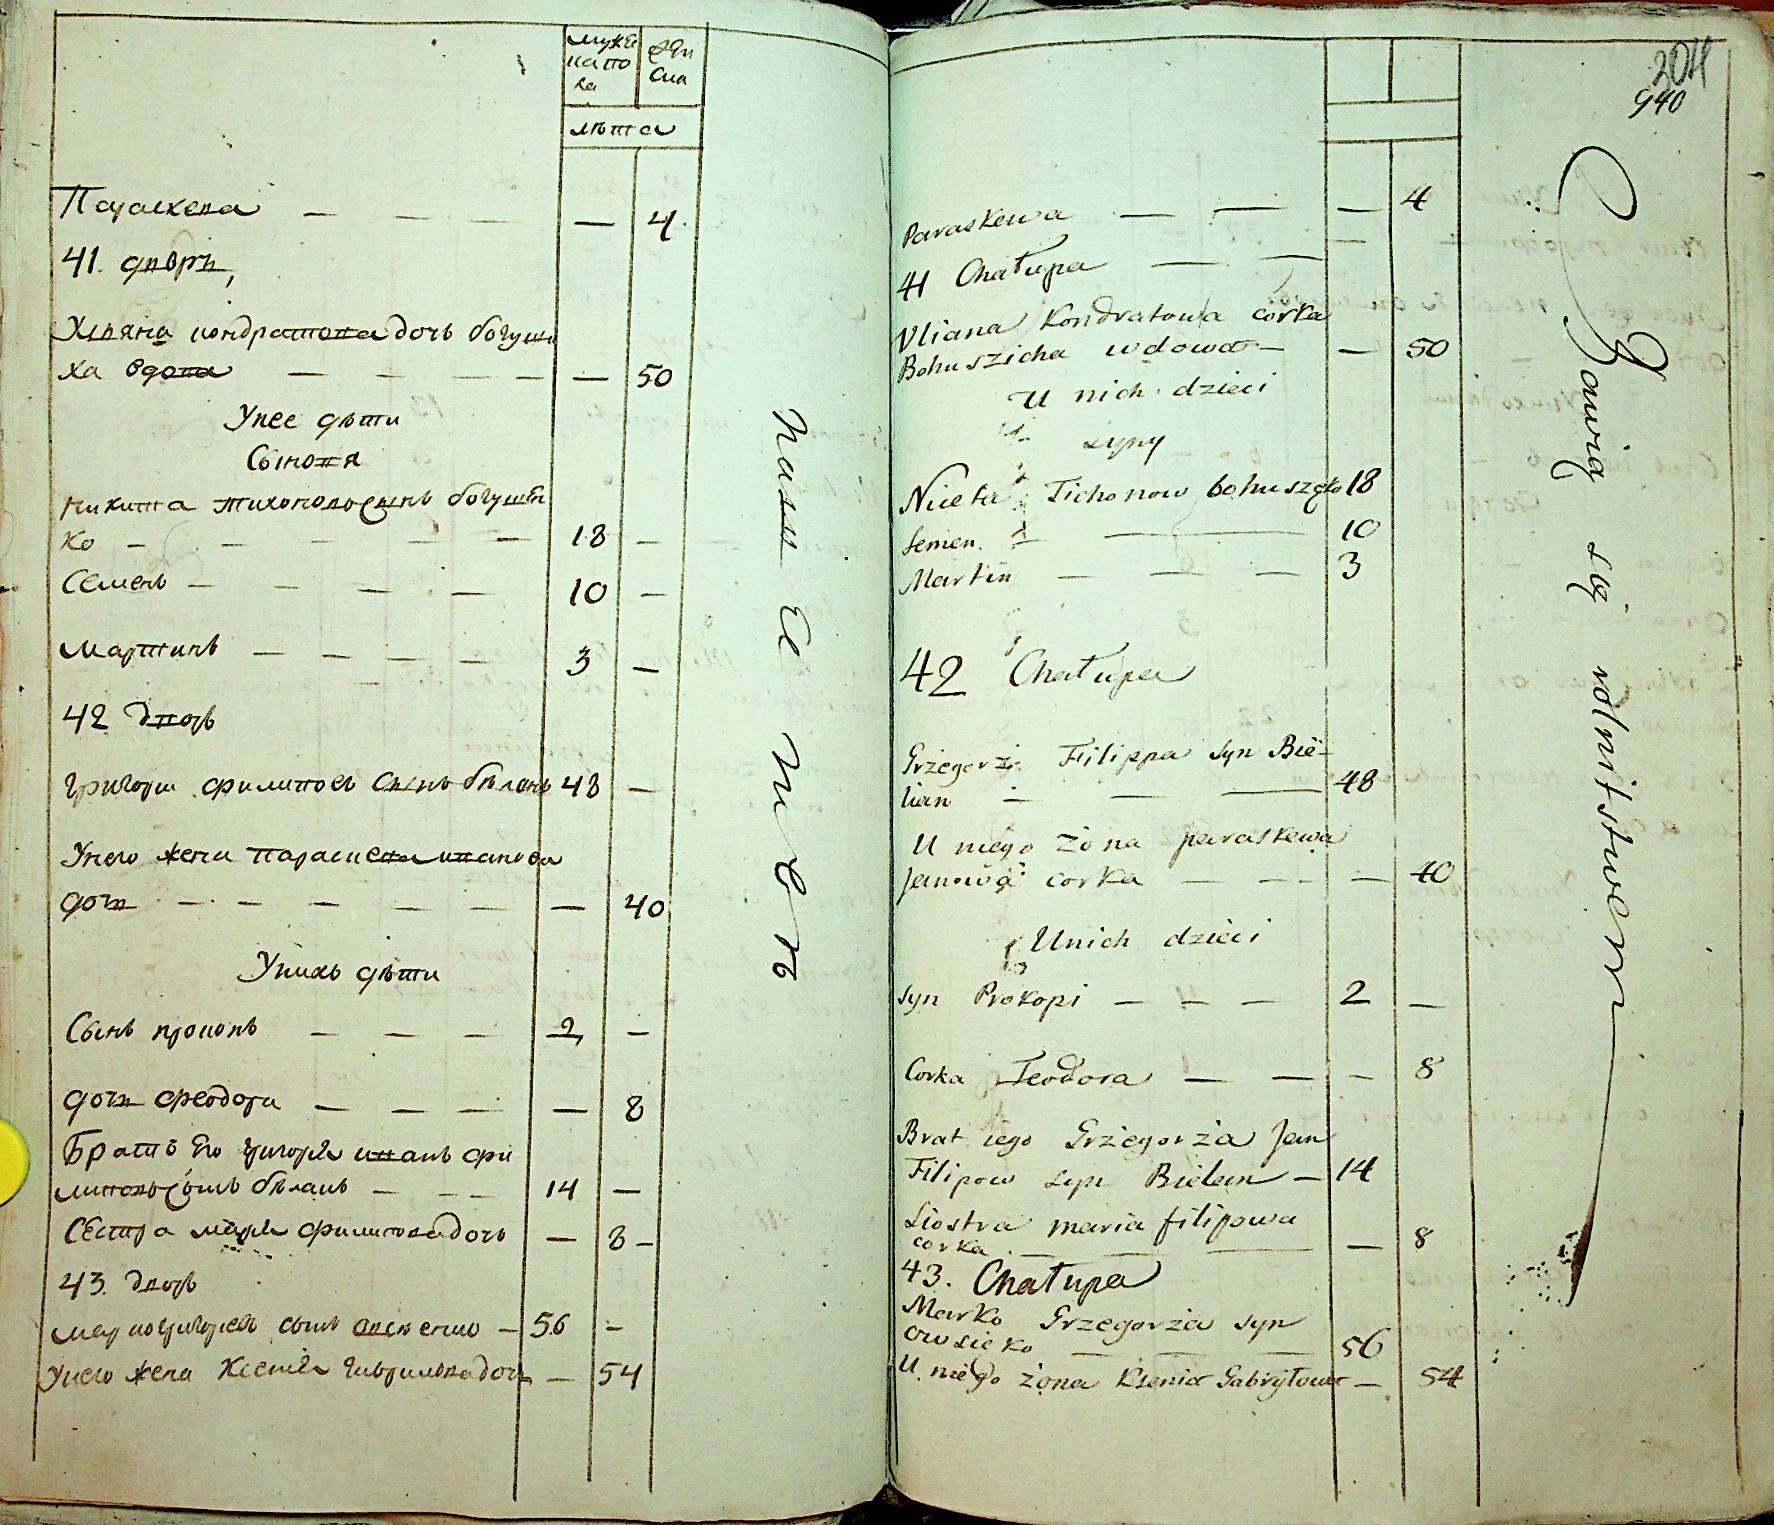 мужеска пола
женска
лѣта
Параскева — — — — 4.
41. дворъ,
Ульяна кондратова дочь богуши
ха вдова — — — — — 50
У нее дѣти
Сыновя
Никита тихоновъ сынъ богушен
ко — — — — — 18 —
Семенъ — — — — 10 —
Мартинъ — — — — 3 —
42 дворъ
Григори филиповъ сынъ бѣланъ 48 —
У него жена параскева иванова
дочь — — — — — — 40
У нихъ дѣти
Сынъ прокопъ — — — 2 —
дочь феодора — — — — 8
Братъ его григорья иванъ фи
липовъ сынъ бѣланъ — — — 14 —
Сестра марья филипова дочь — 8 —
43. дворъ
марко григорьевъ сынъ — 56 —
У него жена Ксения гаврилова дочь — 54
204
940
Paraskewa — — — 4
41 Chałupa — —
Uliana Kondratowa corka
Bohuszicha wdowa — — 50
U nich dzieci
syny
Niceta Tichonow bohuszęko 18
Semen — — 10
Martin — — — 3
42 Chałupa
Grzegorz Filippa syn Bie-
lian — — — 48
U niego żona paraskewa
Janowa corka — — — 40
U nich dzieci
syn Prokopi — — — 2 —
Corka Teodora — — — 8
Brat iego Grzegorża Jan
Filipow syn Bielan — 14
Siostra maria filipowa
corka — — — — 8
43. Chałupa
Marko Grzegorża syn
owsieko — — — 56
U niego żona Ksenia Gabryłowa — 54
Bawią się rolnistwem